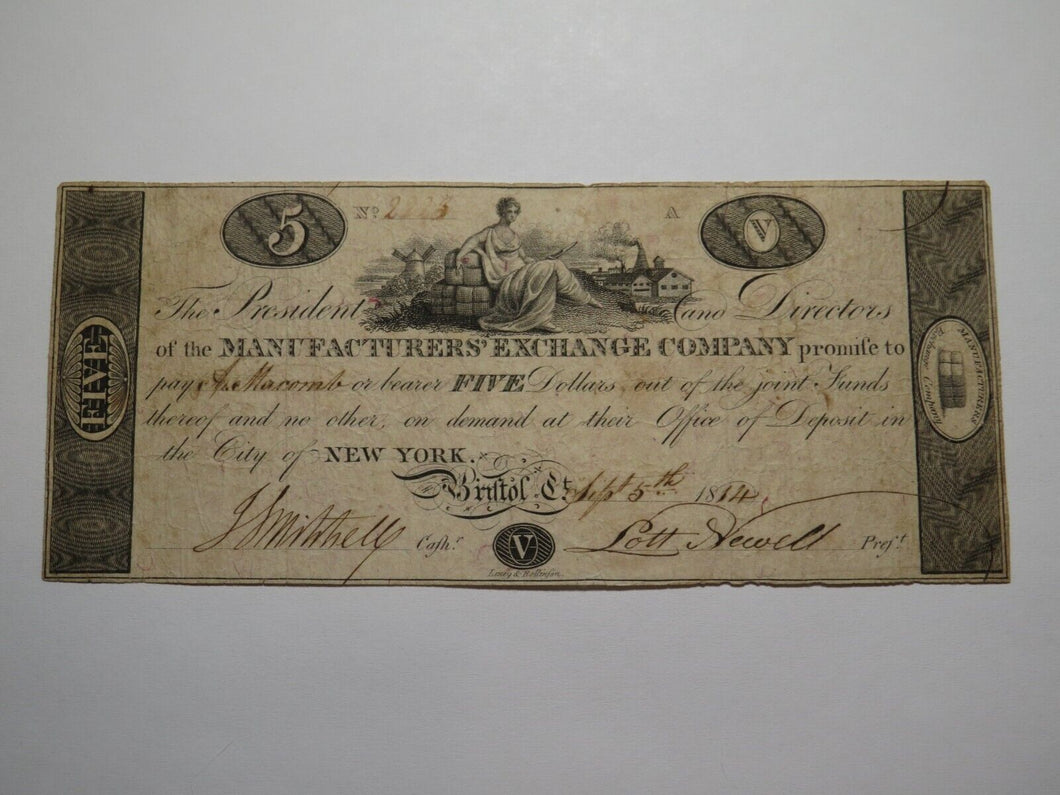 5 Nº A V
The President and Directors
of the MANUFACTURERS' EXCHANGE COMPANY promise to
pay Macomb or bearer FIVE Dollars out of the joint Funds
thereof and no other, on demand at their Office of Deposit in
the City of NEW YORK.
Bristol Ct. Sept 5th 1814
Mitchell Cash.r V Lott Newell Pres.t
Leney & Rollinson
FIVE
MANUFACTURERS
Exchange Company